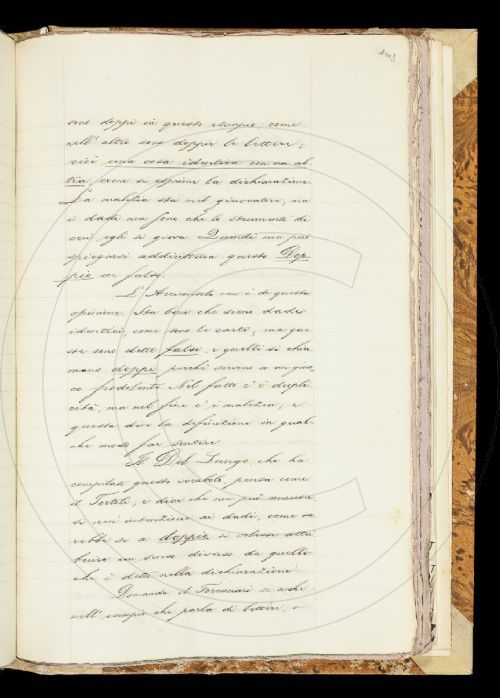 sere doppi in questo esempio, come
nell'altro sono doppie le lettere;
cioè una cosa identica con un al
tra come si esprime la dichiarazione.
La malizia sta nel giuocatore, ma
i dadi non sono che lo strumento di
cui egli si giova. Quindi non può
spiegarsi addirittura questo Dop-
pio con falso.
L'Arciconsolo non è di questa
opinione. Sta bene che sieno dadi
identici come sono le carte; ma que
sti sono detti falsi, e quelli si chia
mano doppi, perchè servono a un giuo
co frodolento. Nel fatto c'è dupli
cità, ma nel fine c'è malizia; e
questo deve la definizione in qual
che modo far sentire.
Il Del Lungo, che ha
compilato questo vocabolo, pensa come
il Tortoli, e dice che non può
si un' intenzione ai dadi, come sa
rebbe se a doppio si volesse attri
buire un senso diverso da quello
che è detto nella dichiarazione.
Domanda il Fornaciari se anche
nell'esempio che parla di lettere, e